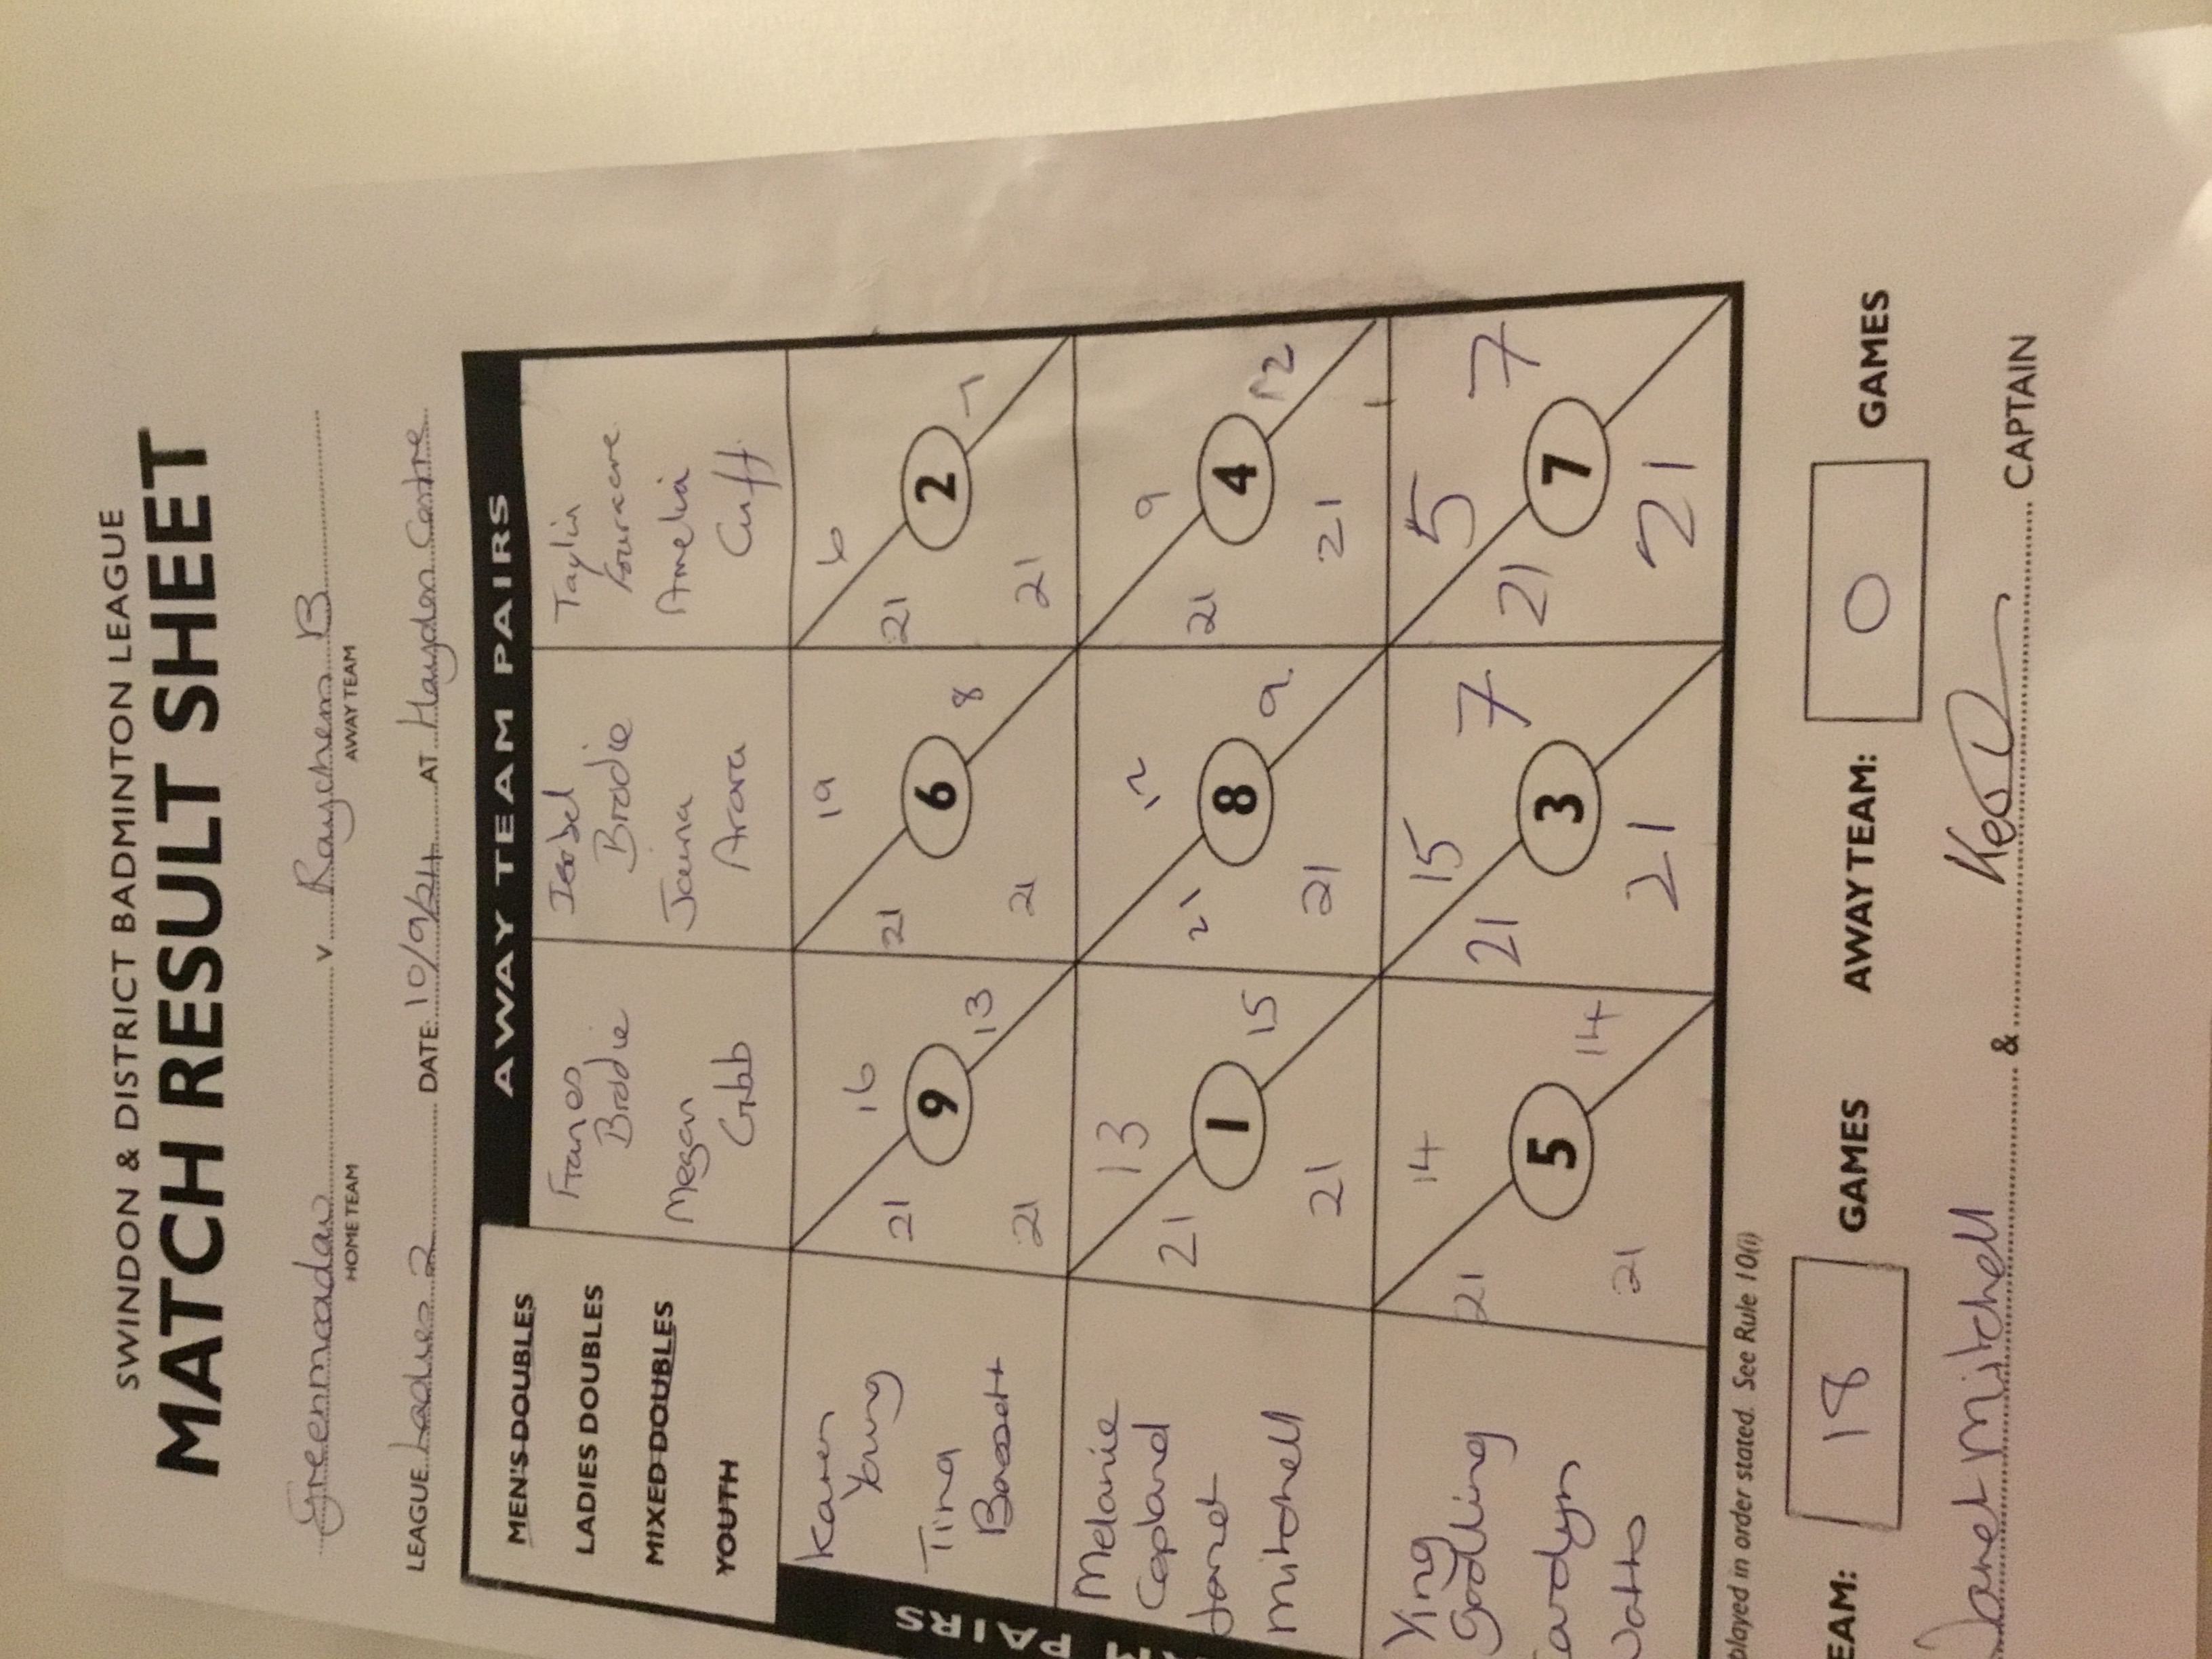 SWINDON & DISTRICT BADMINTON LEAGUE
MATCH RESULT SHEET
Greenmeadow v Raychem B
HOME TEAM AWAY TEAM
LEAGUE Ladies 2 DATE: 10/9/21 AT Haydon Centre
AWAY TEAM PAIRS
MEN'S DOUBLES
LADIES DOUBLES
MIXED DOUBLES
YOUTH
Frances
Brodie
Megan
Gibb
Isobel
Brodie
Joanna
Arora
Taylin
Fouracre
Amelia
Cuff
PAIRS
Karen
Young
Tina
Bassett
21 16
9
21 13
21 19
6
21 8
21 6
2
21 7
Melanie
Copland
Janet
Mitchell
21 13
1
21 15
21 12
8
21 9
21 9
4
21 12
Ying
Gooding
Carolyn
Watts
21 14
5
21 14
21 15
3
21 7
21 5
7
21 7
played in order stated. See Rule 10(i)
EAM: 18 GAMES AWAY TEAM: 0 GAMES
Janet Mitchell & CAPTAIN